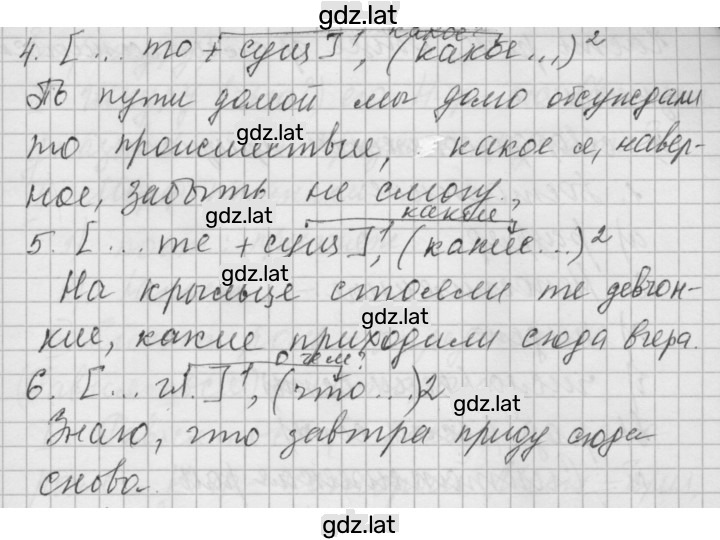 gdz.lat
какое?
4. [... то + сущ]¹, (какое...)²
По пути домой мы долго обсуждали
gdz.lat
то происшествие, какое я, навер-
ное, забыть не смогу.
gdz.lat
какие
5. [... те + сущ]¹, (какие...)²
gdz.lat
На крыльце стояли те девчон-
gdz.lat
кие, какие приходили сюда вчера.
о чем?
6. [... гл.]¹, (что...)2
gdz.lat
Знаю, что завтра приду сюда
снова.
gdz.lat